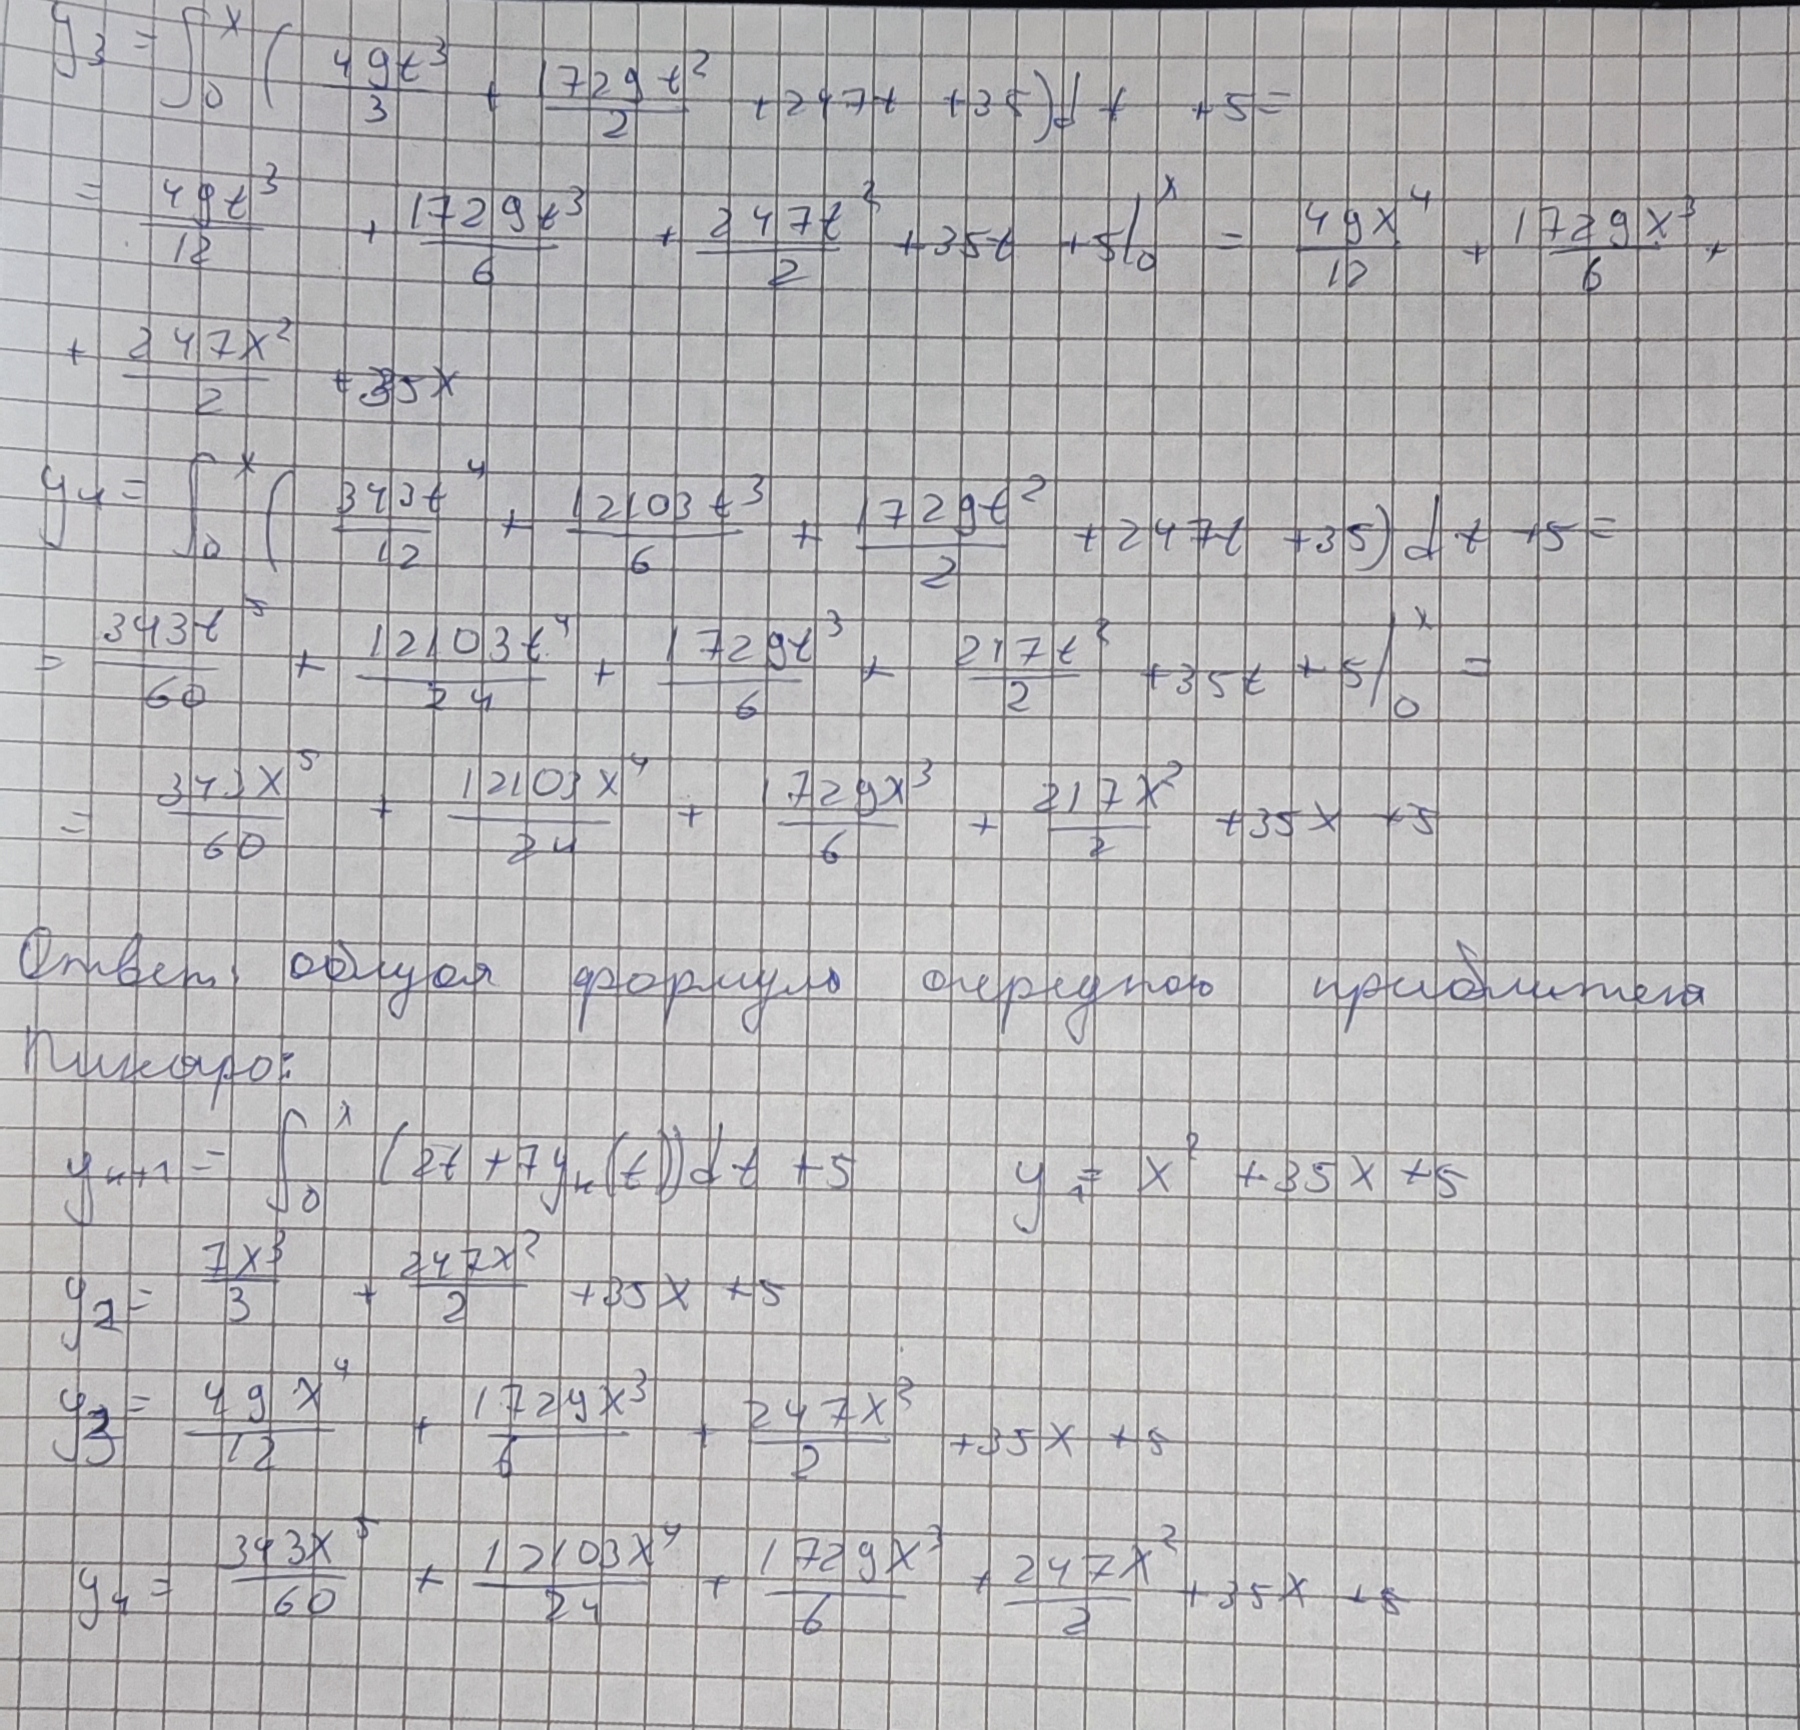 y₃ = ∫₀ˣ ( 49t³/3 + 1729t²/2 + 247t + 35)dt + 5 =
= 49t³/12 + 1729t³/6 + 247t²/2 + 35t + 5|₀ˣ = 49x⁴/12 + 1729x³/6 +
+ 247x²/2 + 35x
y₄ = ∫₀ˣ ( 343t⁴/12 + 12103t³/6 + 1729t²/2 + 247t + 35)dt + 5 =
= 343t⁵/60 + 12103t⁴/24 + 1729t³/6 + 217t²/2 + 35t + 5|₀ˣ =
= 343x⁵/60 + 12103x⁴/24 + 1729x³/6 + 217x²/2 + 35x + 5
Ответ: общая формула очередного
Пикаро:
yₙ₊₁ = ∫₀ˣ (2t + 7yₙ(t))dt + 5 y₁ = x² + 35x + 5
y₂ = 7x³/3 + 247x²/2 + 35x + 5
y₃ = 49x⁴/12 + 1729x³/6 + 247x²/2 + 35x + 5
y₄ = 343x⁵/60 + 12103x⁴/24 + 1729x³/6 + 247x²/2 + 35x + 5